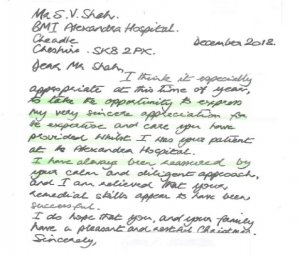 Mr S. V. Shah.
BMI Alexandra Hospital.
Cheadle
Cheshire. SK8 2PX.
December 2018
Dear, Mr Shah,
I think it especially
appropriate at this time of year,
to take the opportunity to express
my very sincere appreciation for
the expertise and care you have
provided whilst I was your patient
at the Alexandra Hospital.
I have always been reassured by
your calm and diligent approach,
and I am relieved that your
remedial skills appear to have been
successful.
I do hope that you, and your family
have a pleasant and restful Christmas.
Sincerely,